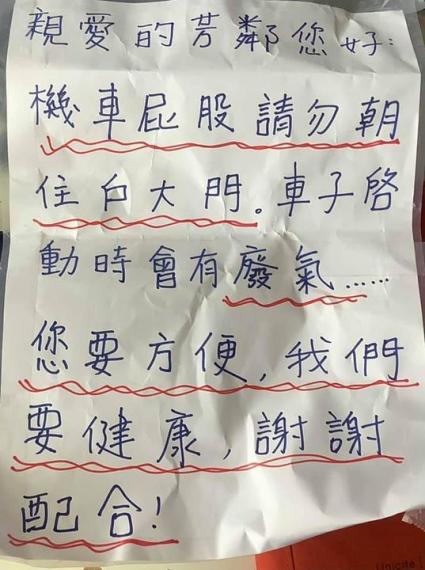 親愛的芳鄰您好：
機車屁股請勿朝
住戶大門。車子啓
動時會有廢氣……
您要方便，我們
要健康，謝謝
配合！